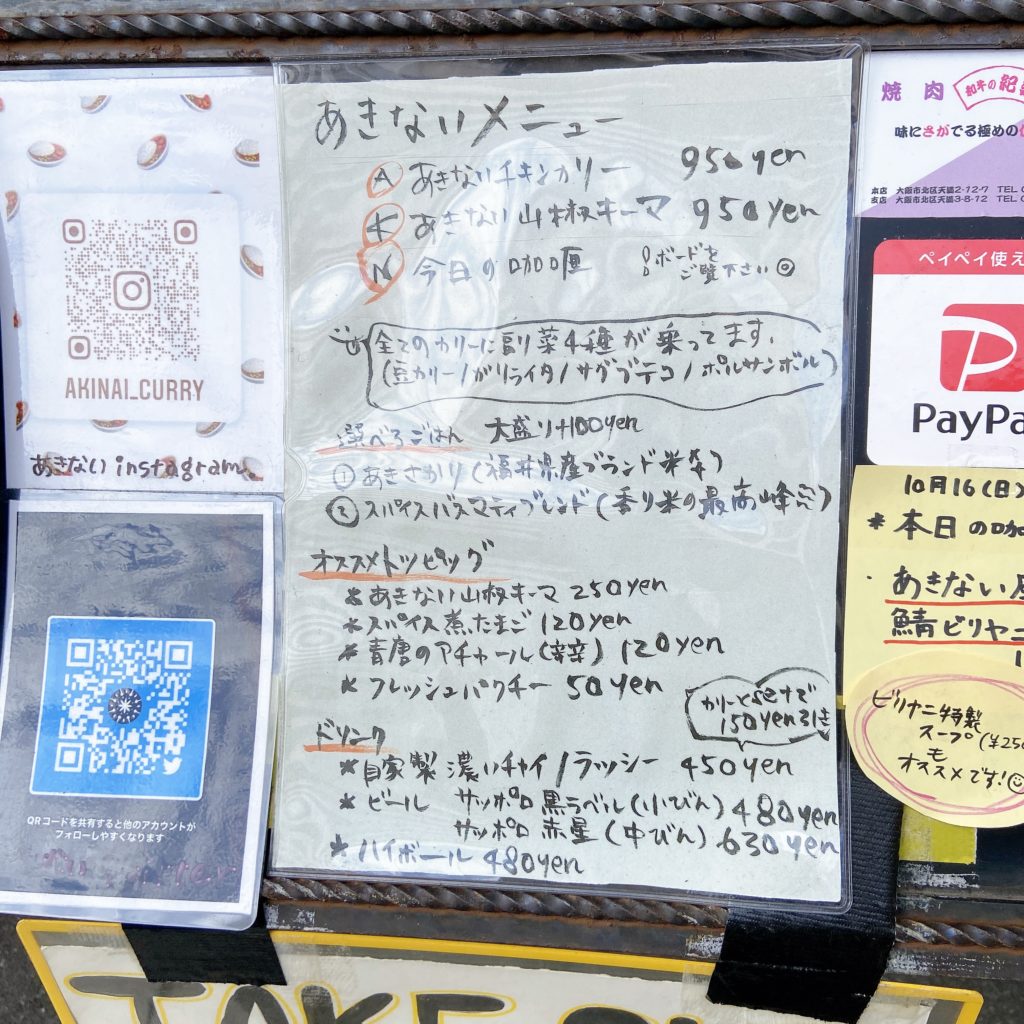 あきないメニュー
A あきないチキンカリー 950yen
K あきない山椒キーマ 950yen
N 今日の咖喱 ボードをご覧下さい◎
全てのカリーに副菜4種が乗ってます.
(豆カリー/ガリライタ/サグブテコ/ポルサンボル)
選べるごはん 大盛り+100yen
① あきさかり(福井県産ブランド米)
② スパイスバスマティブレンド(香り米の最高峰)
オススメトッピング
* あきない山椒キーマ 250yen
* スパイス煮たまご 120yen
* 青唐のアチャール(辛辛) 120yen
* フレッシュパクチー 50yen
カリーとsetで
150yen引き
ドリンク
* 自家製 濃いチャイ/ラッシー 450yen
* ビール サッポロ 黒ラベル(小びん) 480yen
サッポロ 赤星(中びん) 630yen
* ハイボール 480yen
AKINAI_CURRY
あきない instagram
QRコードを共有すると他のアカウントが
フォローしやすくなります
焼肉 和牛の
味にさがでる極めの
本店 大阪市北区天満2-12-7 TEL
支店 大阪市北区天満3-8-12 TEL
ペイペイ使え
PayPa
10月16(日)
* 本日の咖
あきない
鯖ビリヤニ
ビリヤニ特製
スープ(¥250
も
オススメです!
TAKE